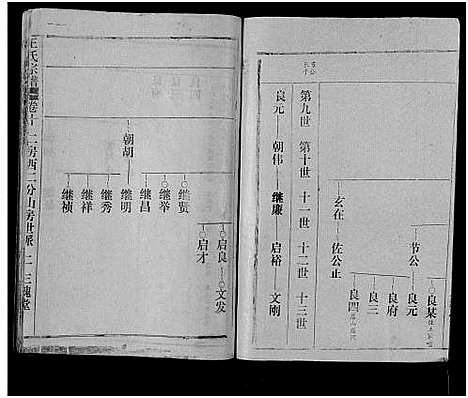 节公
良某
良元
良府
良三
良四
玄在
佐公止
第九世 第十世 十一世 十二世 十三世
良元 朝伟 继廉 启裕 文刚
启良 文发
启才
继贤
继举
继昌
朝胡
继明
继秀
继祥
继祯
王氏宗谱 卷十二房西二分山房世派 二 三槐堂